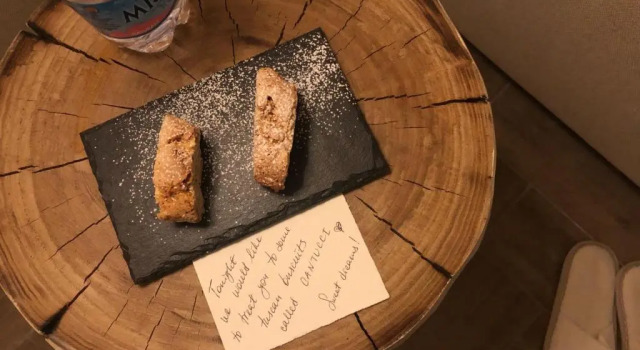 Tonight
we would like
to treat you to some
tuscan biscuits
called CANTUCCI
Sweet dreams!